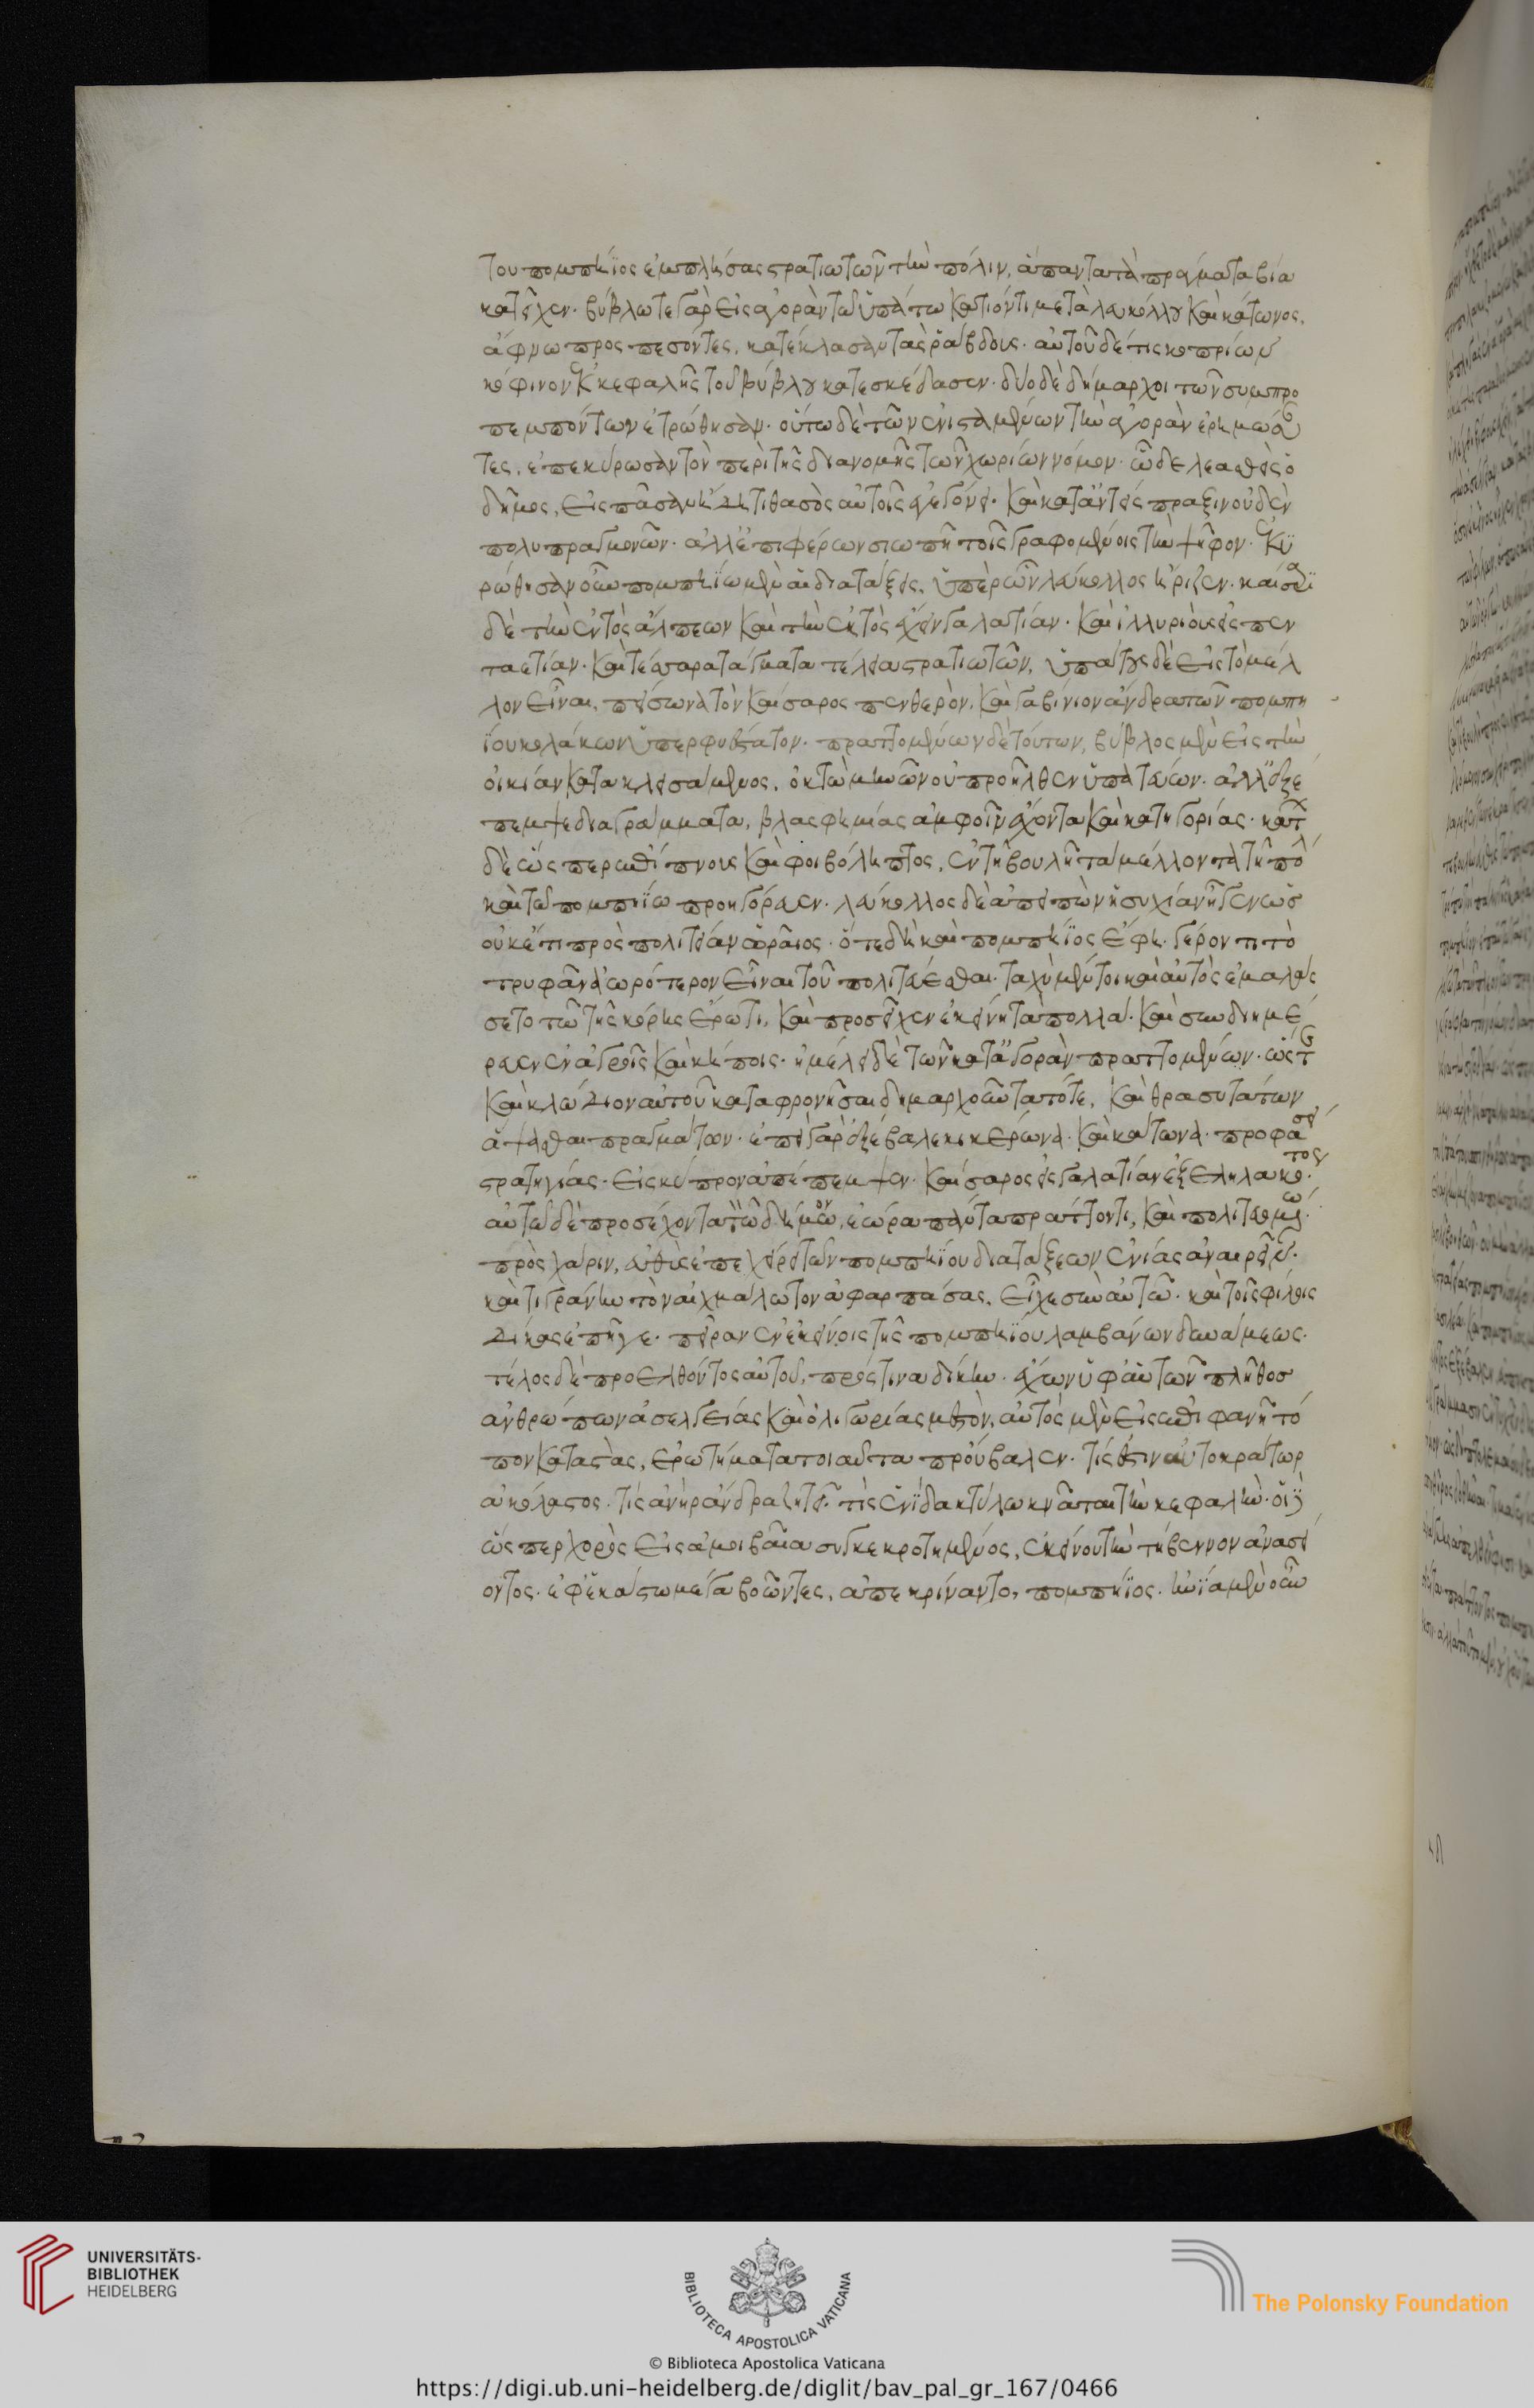 του πομπήϊος ἐμπλήσας στρατιωτῶν τὴν πόλιν, ἅπαντα τὰ πράγματα βία
κατεῖχεν. βύβλω τε γὰρ εἰς ἀγορὰν τῶ ὑπάτω κατιόντι μετὰ λευκόλλου καὶ κάτωνος,
ἄφνω προσπεσόντες, κατέκλασαν τὰς ῥάβδους. αὐτοῦ δέ τις κοπρίων
κόφινον κ κεφαλῆς τοῦ βύβλου κατεσκέδασεν. δύο δὲ δήμαρχοι τῶν συμπρο
πεμπόντων ἐτρώθησαν. οὕτω δὲ τῶν ἐνισταμένων τὴν ἀγορὰν ἐρημώσαν
τες, ἐπεκύρωσαν τὸν περὶ τῆς διανομῆς τῶν χωρίων νόμον. ὧ δελεασθεὶς ὁ
δῆμος, εἰς πᾶσαν ἤδη τιθασὸς αὐτοῖς ἐγεγόνει. καὶ κατάντεις πρᾶξιν οὐδὲν
πολυπραγμονῶν. ἀλλ' ἐπιφέρων σιωπῆ τοῖς γραφομένοις τὴν ψῆφον. ἐκυ
ρώθησαν οὖν πομπηΐω μὲν αἱ διατάξεις, ὑπὲρ ὧν λεύκολλος ἤριζεν. καίσαρι
δὲ τὴν ἐντὸς ἄλπεων καὶ τὴν ἐκτὸς ἔχειν γαλατίαν. καὶ ἰλλυριοὺς εἰς πεν
ταετίαν. καὶ τέσσαρα τάγματα τέλεια στρατιωτῶν, ὑπάτους δὲ εἰς τὸ μέλ
λον εἶναι, πείσωνα τὸν καίσαρος πενθερὸν, καὶ γαβίνιον ἄνδρα τῶν πομπη
ΐου κολάκων ὑπερφυέστατον. πραττομένων δὲ τούτων, βύβλος μὲν εἰς τὴν
οἰκίαν κατακλεισάμενος, ὀκτὼ μηνῶν οὐ προῆλθεν ὑπατεύων. ἀλλ' ἐξέ
πεμψε διαγράμματα, βλασφημίας ἀμφοῖν ἔχοντα καὶ κατηγορίας. κάτων
δὲ ὥσπερ ἐπίπνους καὶ φοιβόληπτος, ἐν τῆ βουλῆ τὰ μέλλοντα τῆ πόλει
καὶ τῶ πομπηΐω προηγόρευεν. λεύκολλος δὲ ἀπειπὼν ἡσυχίαν ἦγεν ὡς
οὐκέτι πρὸς πολιτείαν ὡραῖος. ὅτε δὴ καὶ πομπήϊος ἔφη. γέροντι τὸ
τρυφᾶν ἀωρότερον εἶναι τοῦ πολιτεύεσθαι. ταχὺ μέντοι καὶ αὐτὸς ἐμαλάσ
σετο τῶ τῆς κόρης ἔρωτι, καὶ προσεῖχεν ἐκείνη τὰ πολλά. καὶ συνδιημέ
ρευεν ἐν ἀγροῖς καὶ κήποις. ἠμέλει δὲ τῶν κατ' ἀγορὰν πραττομένων. ὥστε
καὶ κλώδιον αὐτοῦ καταφρονῆσαι δημαρχοῦντα τότε, καὶ θρασυτάτων
ἅψασθαι πραγμάτων. ἐπεὶ γὰρ ἐξέβαλε κικέρωνα. καὶ κάτωνα. προφάσει
στρατηγίας. εἰς κύπρον ἀπέπεμψεν. καίσαρος εἰς γαλατίαν ἐξεληλακότος.
αὐτῶ δὲ προσέχοντα τὸν δῆμον, ἑώρα πάντα πράττοντι, καὶ πολιτευομένω
πρὸς χάριν, εὐθὺς ἐπεχείρει τῶν πομπηΐου διατάξεων ἐνίας ἀναιρεῖν.
καὶ τιγράνην τὸν αἰχμάλωτον ἀφαρπάσας, εἶχε σὺν αὑτῶ. καὶ τοῖς φίλοις
δίκας ἐπῆγε. πεῖραν ἐν ἐκείνοις τῆς πομπηΐου λαμβάνων δυνάμεως.
τέλος δὲ προελθόντος αὐτοῦ, πρός τινα δίκην. ἔχων ὑφ' αὑτῶ πλῆθος
ἀνθρώπων ἀσελγείας καὶ ὀλιγωρίας μεστὸν, αὐτὸς μὲν εἰς ἐπιφανῆ τό
πον καταστὰς, ἐρωτήματα τοιαῦτα προύβαλεν. τίς ἐστιν αὐτοκράτωρ
ἀκόλαστος. τίς ἀνὴρ ἄνδρα ζητεῖ. τίς ἑνὶ δακτύλω κνᾶται τὴν κεφαλήν. οἱ δὲ
ὥσπερ χορὸς εἰς ἀμοιβαῖα συγκεκροτημένος, ἐκείνου τὴν τήβεννον ἀνασεί
οντος. ἐφ' ἑκάστω μέγα βοῶντες, ἀπεκρίναντο, πομπήϊος. ἠνία μὲν οὖν
UNIVERSITÄTS-
BIBLIOTHEK
HEIDELBERG
BIBLIOTECA APOSTOLICA VATICANA
The Polonsky Foundation
© Biblioteca Apostolica Vaticana
https://digi.ub.uni-heidelberg.de/diglit/bav_pal_gr_167/0466